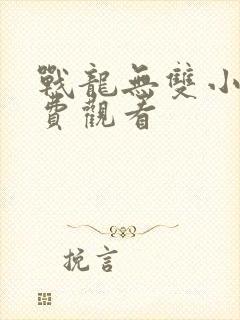 戰龍無雙小
費觀看
挽言